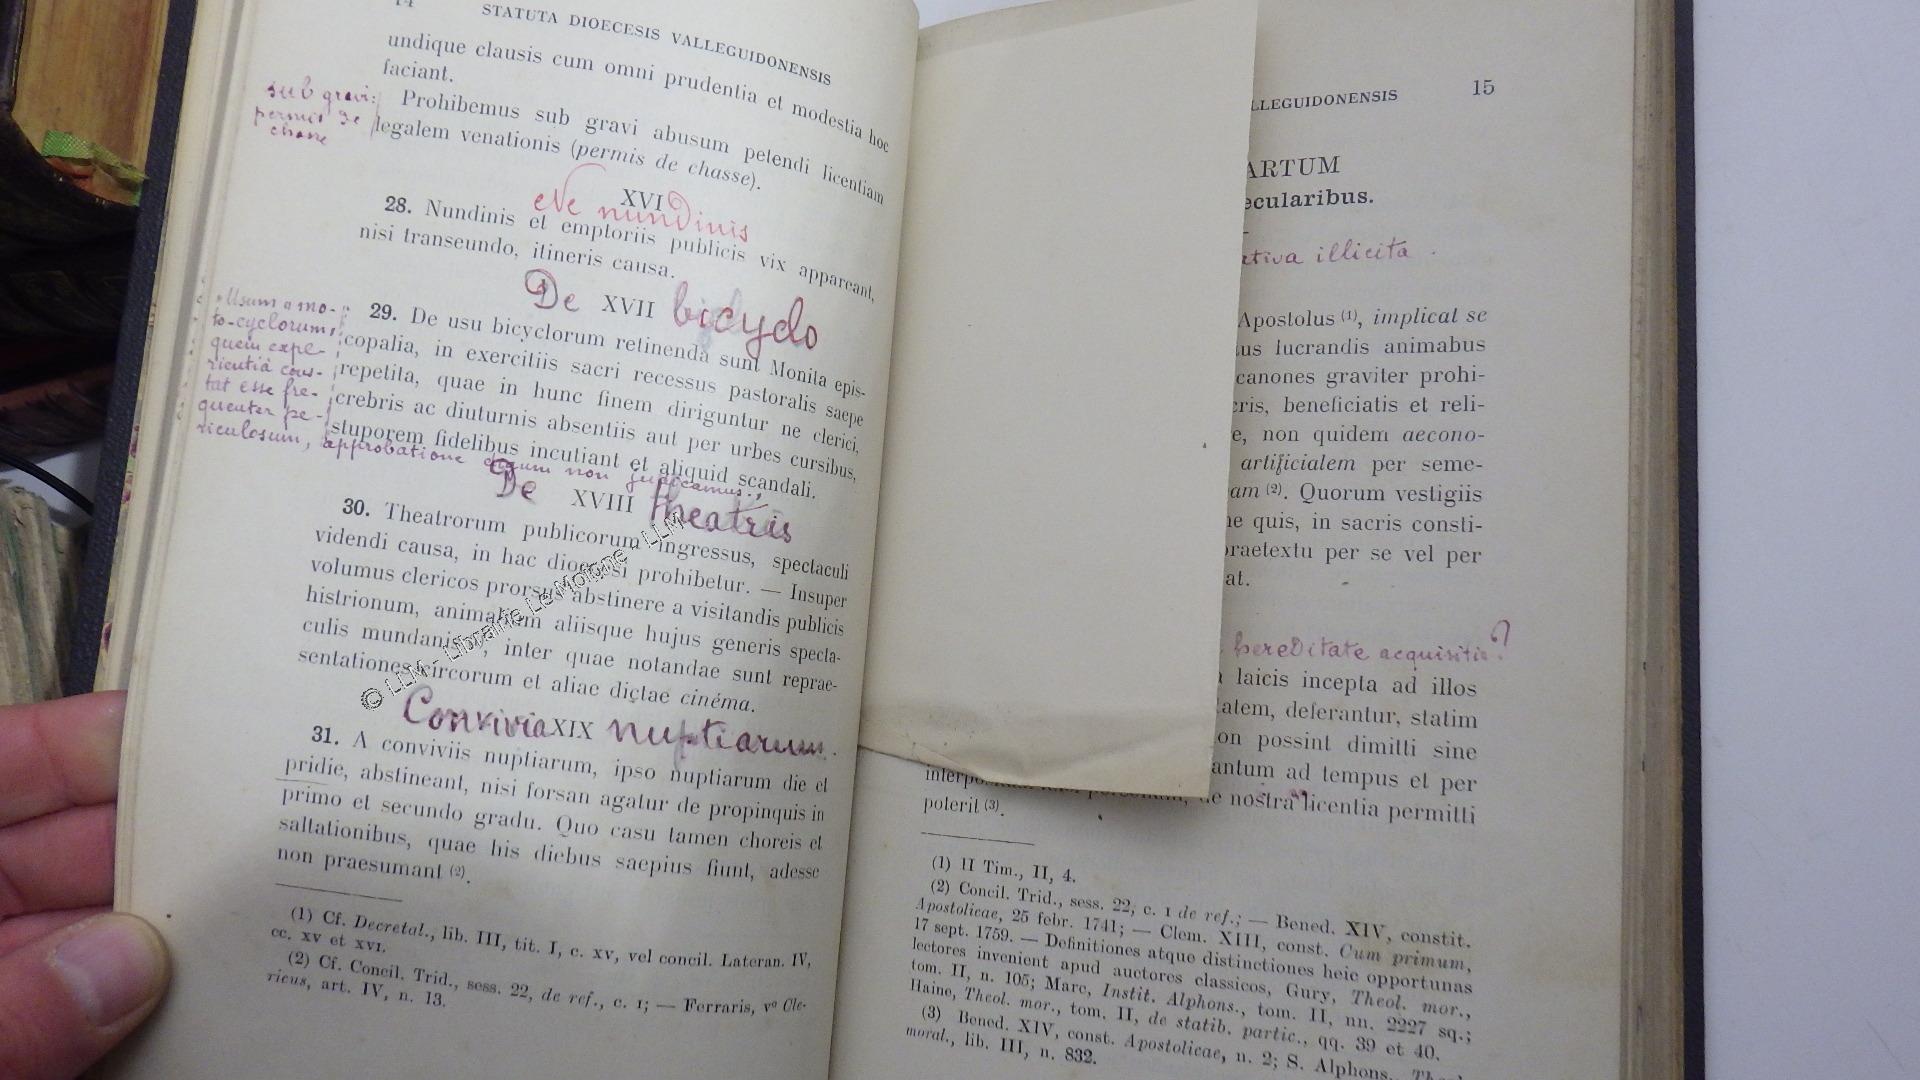 14 STATUTA DIOECESIS VALLEGUIDONENSIS
undique clausis cum omni prudentia et modestia hoc
faciant.
sub gravi:
permis de
chasse
Prohibemus sub gravi abusum petendi licentiam
legalem venationis (permis de chasse).
XVI
Ne nundinis
28. Nundinis et emptoriis publicis vix appareant,
nisi transeundo, itineris causa.
De XVII bicyclo
29. De usu bicyclorum retinenda sunt Monita epis-
copalia, in exercitiis sacri recessus pastoralis saepe
repetita, quae in hunc finem diriguntur ne clerici,
crebris ac diuturnis absentiis aut per urbes cursibus,
stuporem fidelibus incutiant et aliquid scandali.
"Usum a mo-
to-cyclorum,
quem expe-
rientiâ cons-
tat esse fre-
quenter pe-
riculosum, approbatione dignum non judicamus.,
De XVIII theatris
30. Theatrorum publicorum ingressus, spectaculi
videndi causa, in hac dioecesi prohibetur. — Insuper
volumus clericos prorsus abstinere a visitandis publicis
histrionum, animalium aliisque hujus generis specta-
culis mundanis, inter quae notandae sunt reprae-
sentationes circorum et aliae dictae cinéma.
Convivia XIX nuptiarum.
31. A conviviis nuptiarum, ipso nuptiarum die et
pridie, abstineant, nisi forsan agatur de propinquis in
primo et secundo gradu. Quo casu tamen choreis et
saltationibus, quae his diebus saepius fiunt, adesse
non praesumant (2).
(1) Cf. Decretal., lib. III, tit. I, c. xv, vel concil. Lateran. IV,
cc. xv et xvi.
(2) Cf. Concil. Trid., sess. 22, de ref., c. 1; — Ferraris, vº Cle-
ricus, art. IV, n. 13.
© LLM - Librairie Le Moione - LLM
LLEGUIDONENSIS 15
ARTUM
ecularibus.
ativa illicita.
Apostolus (1), implicat se
tus lucrandis animabus
canones graviter prohi-
cris, beneficiatis et reli-
e, non quidem aecono-
artificialem per seme-
am (2). Quorum vestigiis
ne quis, in sacris consti-
praetextu per se vel per
at.
hereditate acquisitis?
laicis incepta ad illos
atem, deferantur, statim
on possint dimitti sine
antum ad tempus et per
de nostra licentia permitti
poterit (3).
(1) II Tim., II, 4.
(2) Concil. Trid., sess. 22, c. 1 de ref.; — Bened. XIV, constit.
Apostolicae, 25 febr. 1741; — Clem. XIII, const. Cum primum,
17 sept. 1759. — Definitiones atque distinctiones heic opportunas
lectores invenient apud auctores classicos, Gury, Theol. mor.,
tom. II, n. 105; Marc, Instit. Alphons., tom. II, nn. 2227 sq.;
Haine, Theol. mor., tom. II, de statib. partic., qq. 39 et 40.
(3) Bened. XIV, const. Apostolicae, n. 2; S. Alphons., Theol.
moral., lib. III, n. 832.